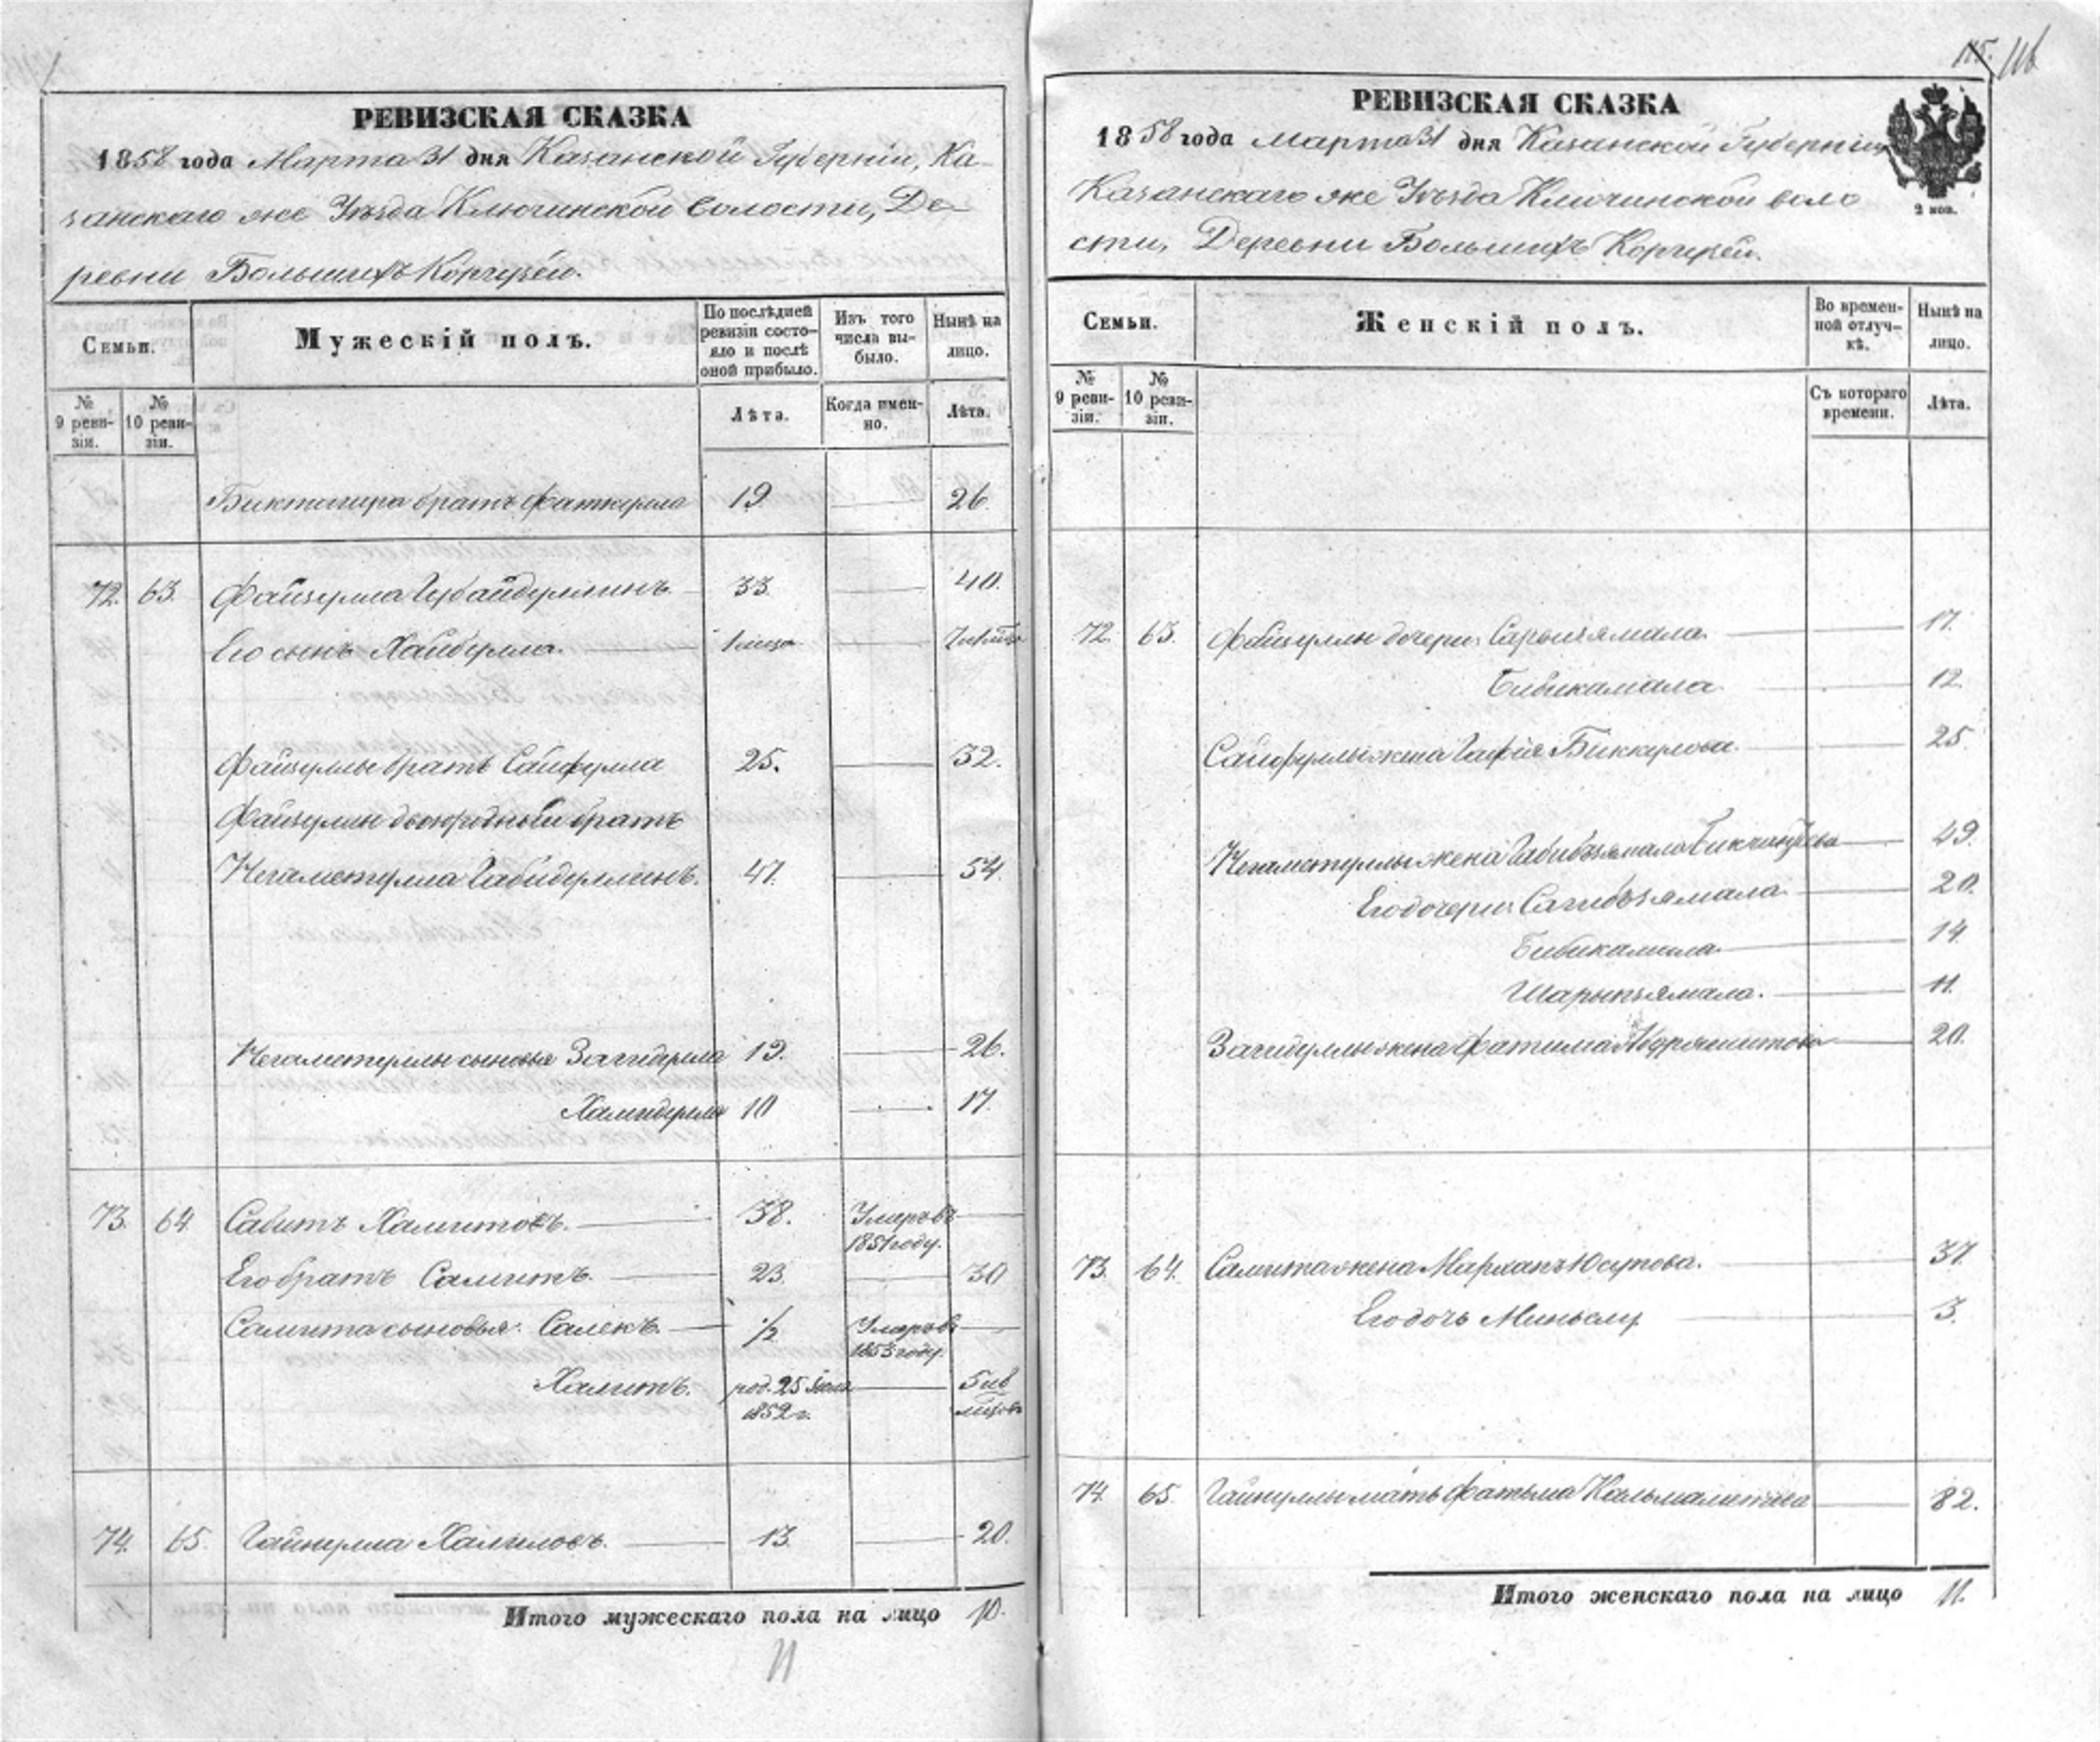 115. 116
РЕВИЗСКАЯ СКАЗКА
1858 года Марта 31 дня Казанской Губерніи, Ка-
занскаго же Уѣзда Ключинской Волости, Де-
ревни Большихъ Коргузей.
Семьи.
Мужескій полъ.
По послѣдней ревизіи состо-
яло и послѣ оной прибыло.
Изъ того числа вы-
было.
Нынѣ на лицо.
№ 9 реви-
зіи.
№ 10 реви-
зіи.
Лѣта.
Когда имен-
но.
Лѣта.
Биктагира братъ Фаткулла 19 26.
72. 63. Файзулла Губайдуллинъ 33. 40.
Его сынъ Хайбулла.
Файзуллы братъ Сайфулла 25. 32.
Файзуллы двоюродный братъ
Негаметулла Габидуллинъ. 47. 54.
Негаметуллы сыновья Загидулла 19. 26.
Хамидулла 10 17.
73. 64. Савитъ Хамитовъ. 38. Умеръ въ
1851 году.
Его братъ Самитъ. 23. 30
Самита сыновья: Салекъ. 1/2 Умеръ въ
1853 году.
Халитъ. род. 25 Іюля 5 ив
1852 г.
74. 65. Гайнулла Халиловъ. 13. 20.
Итого мужескаго пола на лицо 10.
11
РЕВИЗСКАЯ СКАЗКА
1858 года Марта 31 дня Казанской Губерніи
Казанскаго же Уѣзда Ключинской воло
сти, Деревни Большихъ Коргузей.
2 коп.
Семьи.
Женскій полъ.
Во времен-
ной отлуч-
кѣ.
Нынѣ на лицо.
№ 9 реви-
зіи.
№ 10 реви-
зіи.
Съ котораго времени.
Лѣта.
72. 63. Файзуллы дочери: 17.
Бибикамала 12.
Сайфуллы жена Гафія Биккулова. 25
Негаметуллы жена 49.
Его дочери: Сагибзямала 20.
Бибикамала. 14.
Шарыпзямала. 11.
Загидуллы жена Фатима 20.
73. 64. Самита жена Юсупова. 37.
Его дочь Миньслу 3.
74. 65. Гайнуллы мать Фатьма 82.
Итого женскаго пола на лицо 11.